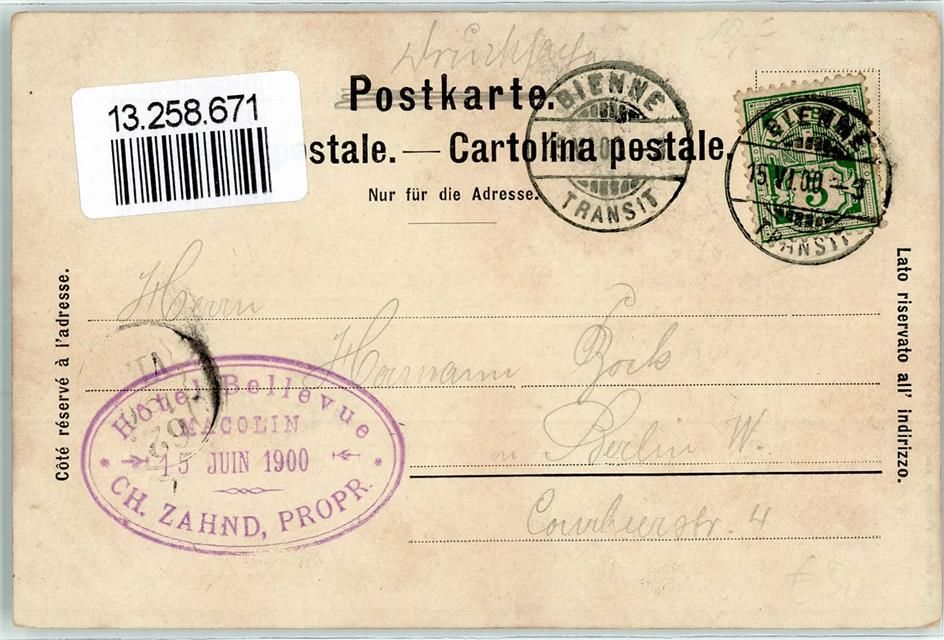 Drucksache
13.258.671
Postkarte.
stale. — Cartolina postale.
Nur für die Adresse.
BIENNE
TRANSIT
BIENNE
15.VI.00
TRANSIT
5
Côté réservé à l'adresse.
Lato riservato all' indirizzo.
Herrn
Hermann Bock
Berlin W.
Courbierstr. 4
Hôtel Bellevue
MACOLIN
15 JUIN 1900
CH. ZAHND, PROPR.